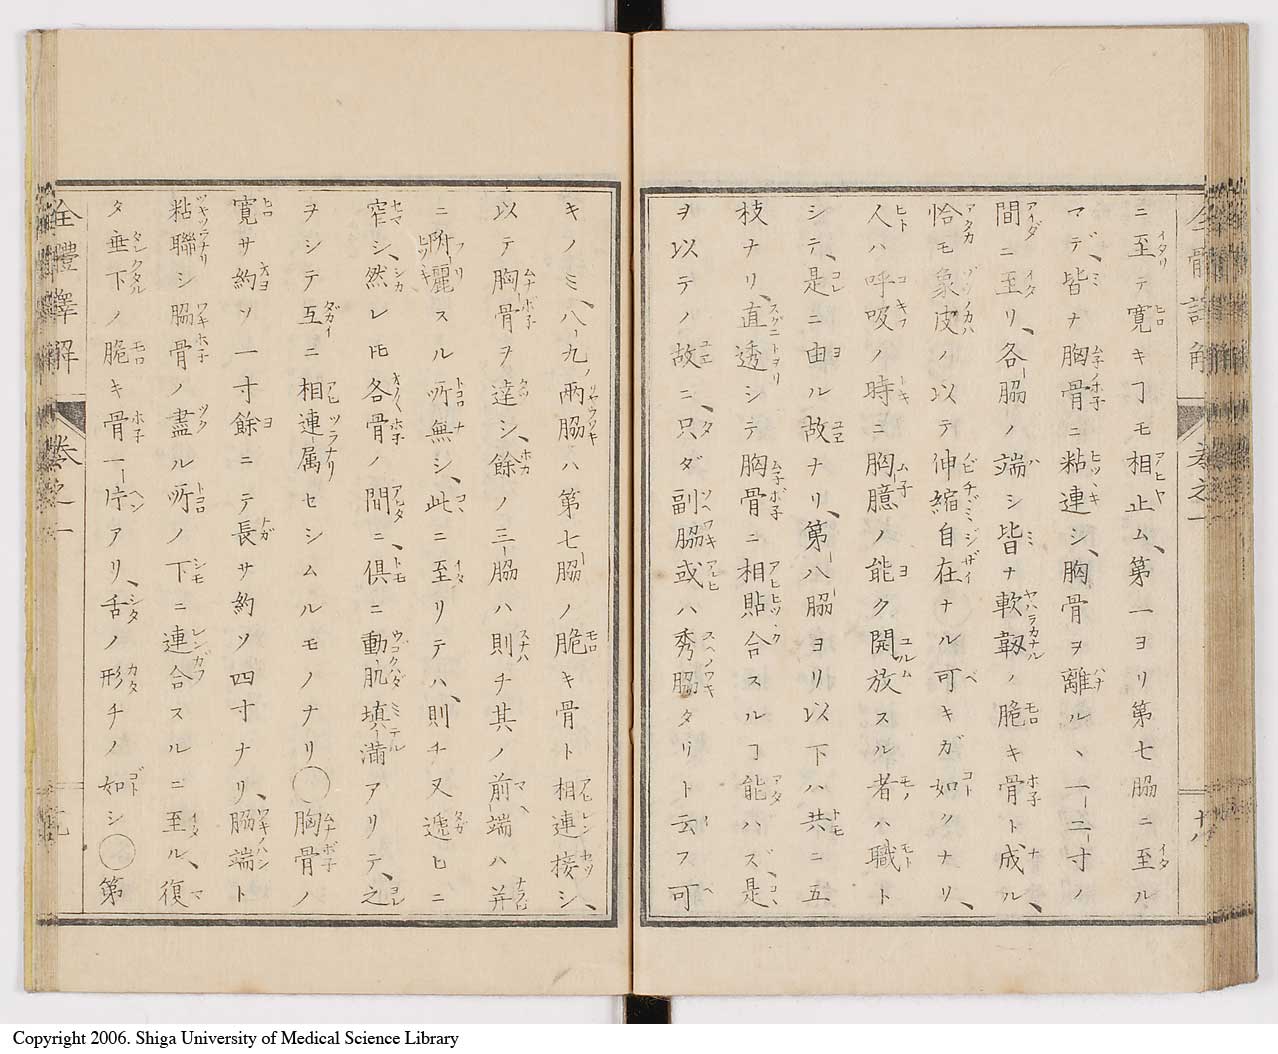 ニ至テ寛キヿモ相止ム、第一ヨリ第七脇ニ至ル
マデ、皆ナ胸骨ニ粘連シ、胸骨ヲ離ルヽ、一二寸ノ
間ニ至リ、各脇ノ端シ皆ナ軟韌ノ脆キ骨ト成ル、
恰モ象皮ノ以テ伸縮自在ナル可キガ如クナリ、
人ハ呼吸ノ時ニ胸臆ノ能ク開放スル者ハ職ト
シテ、是ニ由ル故ナリ、第八脇ヨリ以下ハ共ニ五
枝ナリ、直透シテ胸骨ニ相貼合スルヿ能ハズ、是
ヲ以テノ故ニ、只ダ副脇或ハ秀脇タリト云フ可
キノミ、八九ノ兩脇ハ第七脇ノ脆キ骨ト相連接シ、
以テ胸骨ヲ達シ、餘ノ三脇ハ則チ其ノ前端ハ并
ニ附麗スル所無シ、此ニ至リテハ、則チ又遞ヒニ
窄シ、然レ𪜈各骨ノ間ニ、俱ニ動肌填滿アリテ、之
ヲシテ互ニ相連属セシムルモノナリ◯胸骨ノ
寛サ約ソ一寸餘ニテ長サ約ソ四寸ナリ、脇端ト
粘聯シ脇骨ノ盡ル所ノ下ニ連合スルニ至ル、復
タ垂下ノ脆キ骨一片アリ、舌ノ形チノ如シ◯第
全體譯解
卷之一
Copyright 2006. Shiga University of Medical Science Library